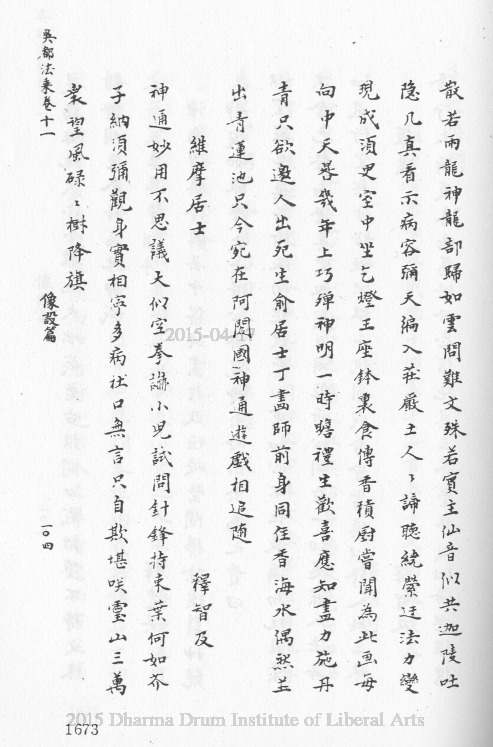 散若雨龍神龍部歸如雲問難文殊若賓主仙音似共迦陵吐
隐几真看示病容彌天徧入莊嚴土人〻諦聽繞縈迂法力變
現成須臾空中坐乞燈王座鉢裏食傳香積廚嘗聞為此画每
向中天暮幾年上巧殫神明一時瞻禮生歡喜應知盡力施丹
青只欲邀人出死生俞居士丁畫師前身同住香海水偶然並
出青蓮池只今宛在阿閦國神通遊戲相追随
維摩居士
釋智及
神通妙用不思議大似空拳誑小兒試問針鋒持束葉何如芥
子納須彌觀身實相寧多病杜口無言只自欺堪咲靈山三萬
衆望風碌〻樹降旗
吳都法乘卷十一
像設篇
一〇四
1673
2015-04-17
2015 Dharma Drum Institute of Liberal Arts